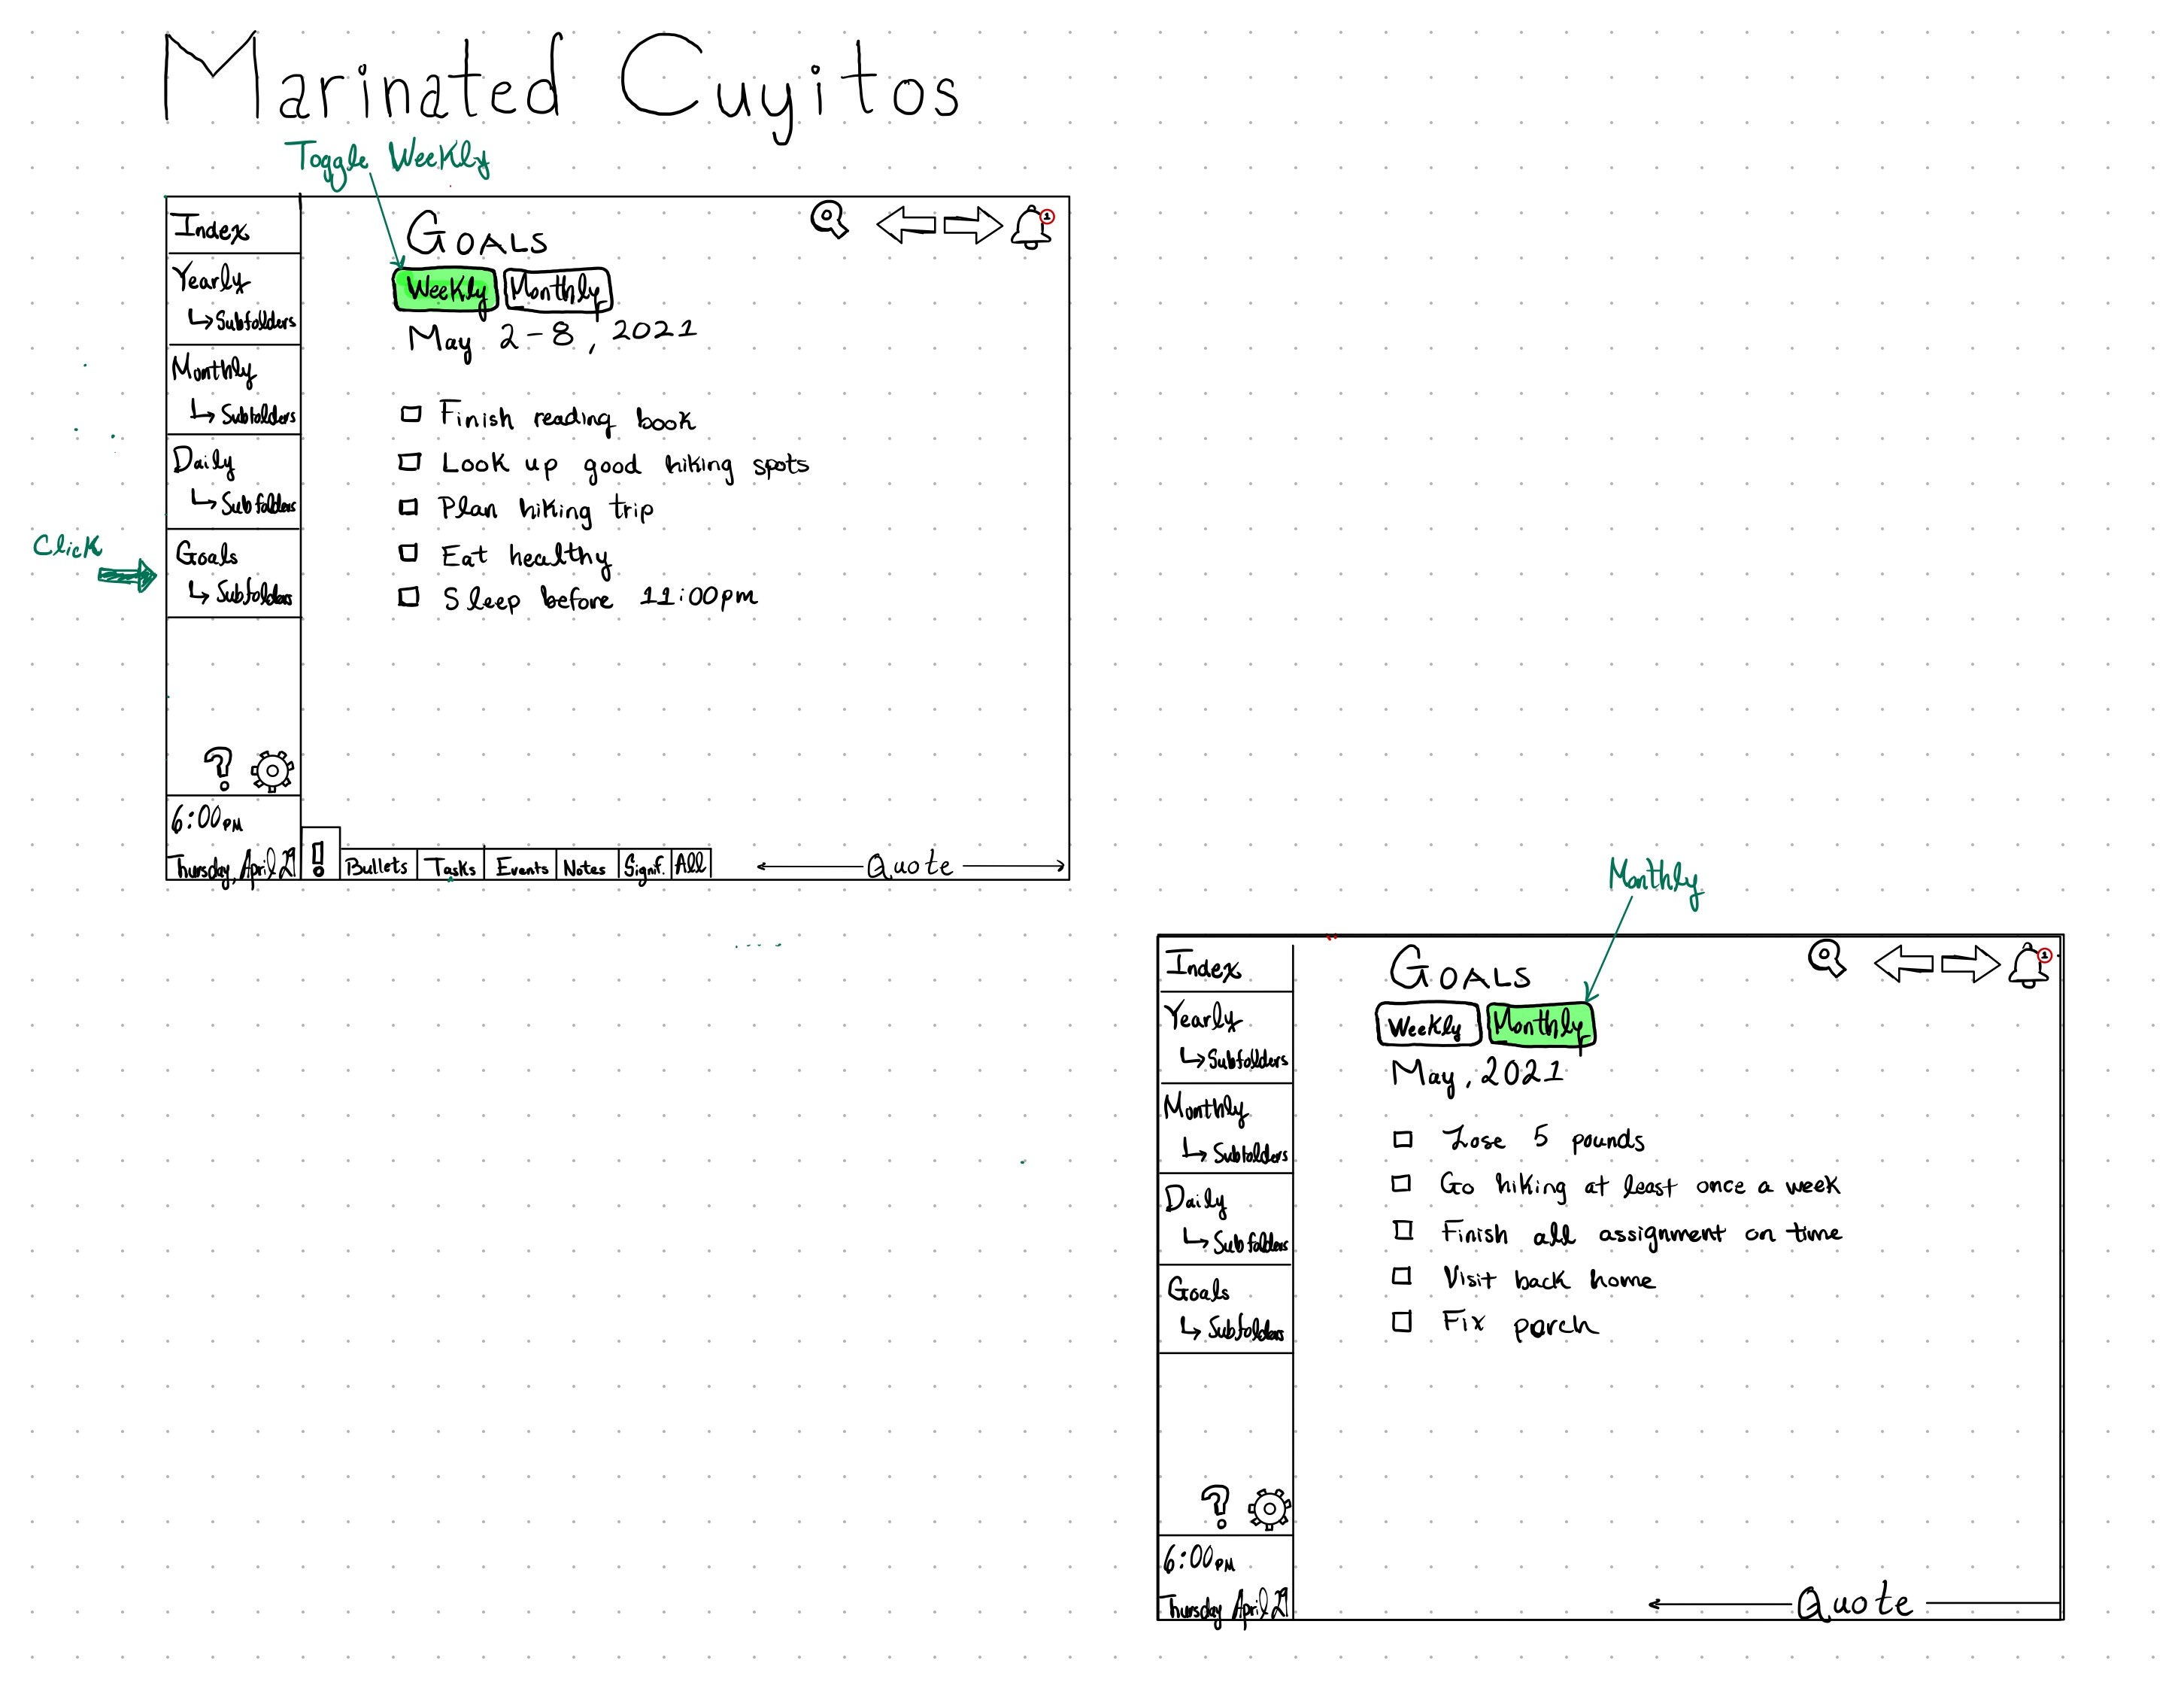 Marinated Cuyitos
Toggle Weekly
Index
Yearly
Subfolders
Monthly
Subfolders
Daily
Subfolders
Click
Goals
Subfolders
?
6:00 PM
Thursday, April 29
GOALS
1
Weekly Monthly
May 2-8, 2021
Finish reading book
Look up good hiking spots
Plan hiking trip
Eat healthy
Sleep before 11:00pm
! Bullets Tasks Events Notes Signif. All Quote
Monthly
Index
Yearly
Subfolders
Monthly
Subfolders
Daily
Subfolders
Goals
Subfolders
?
6:00 PM
Thursday April 29
GOALS
1
Weekly Monthly
May, 2021
Lose 5 pounds
Go hiking at least once a week
Finish all assignment on time
Visit back home
Fix porch
Quote